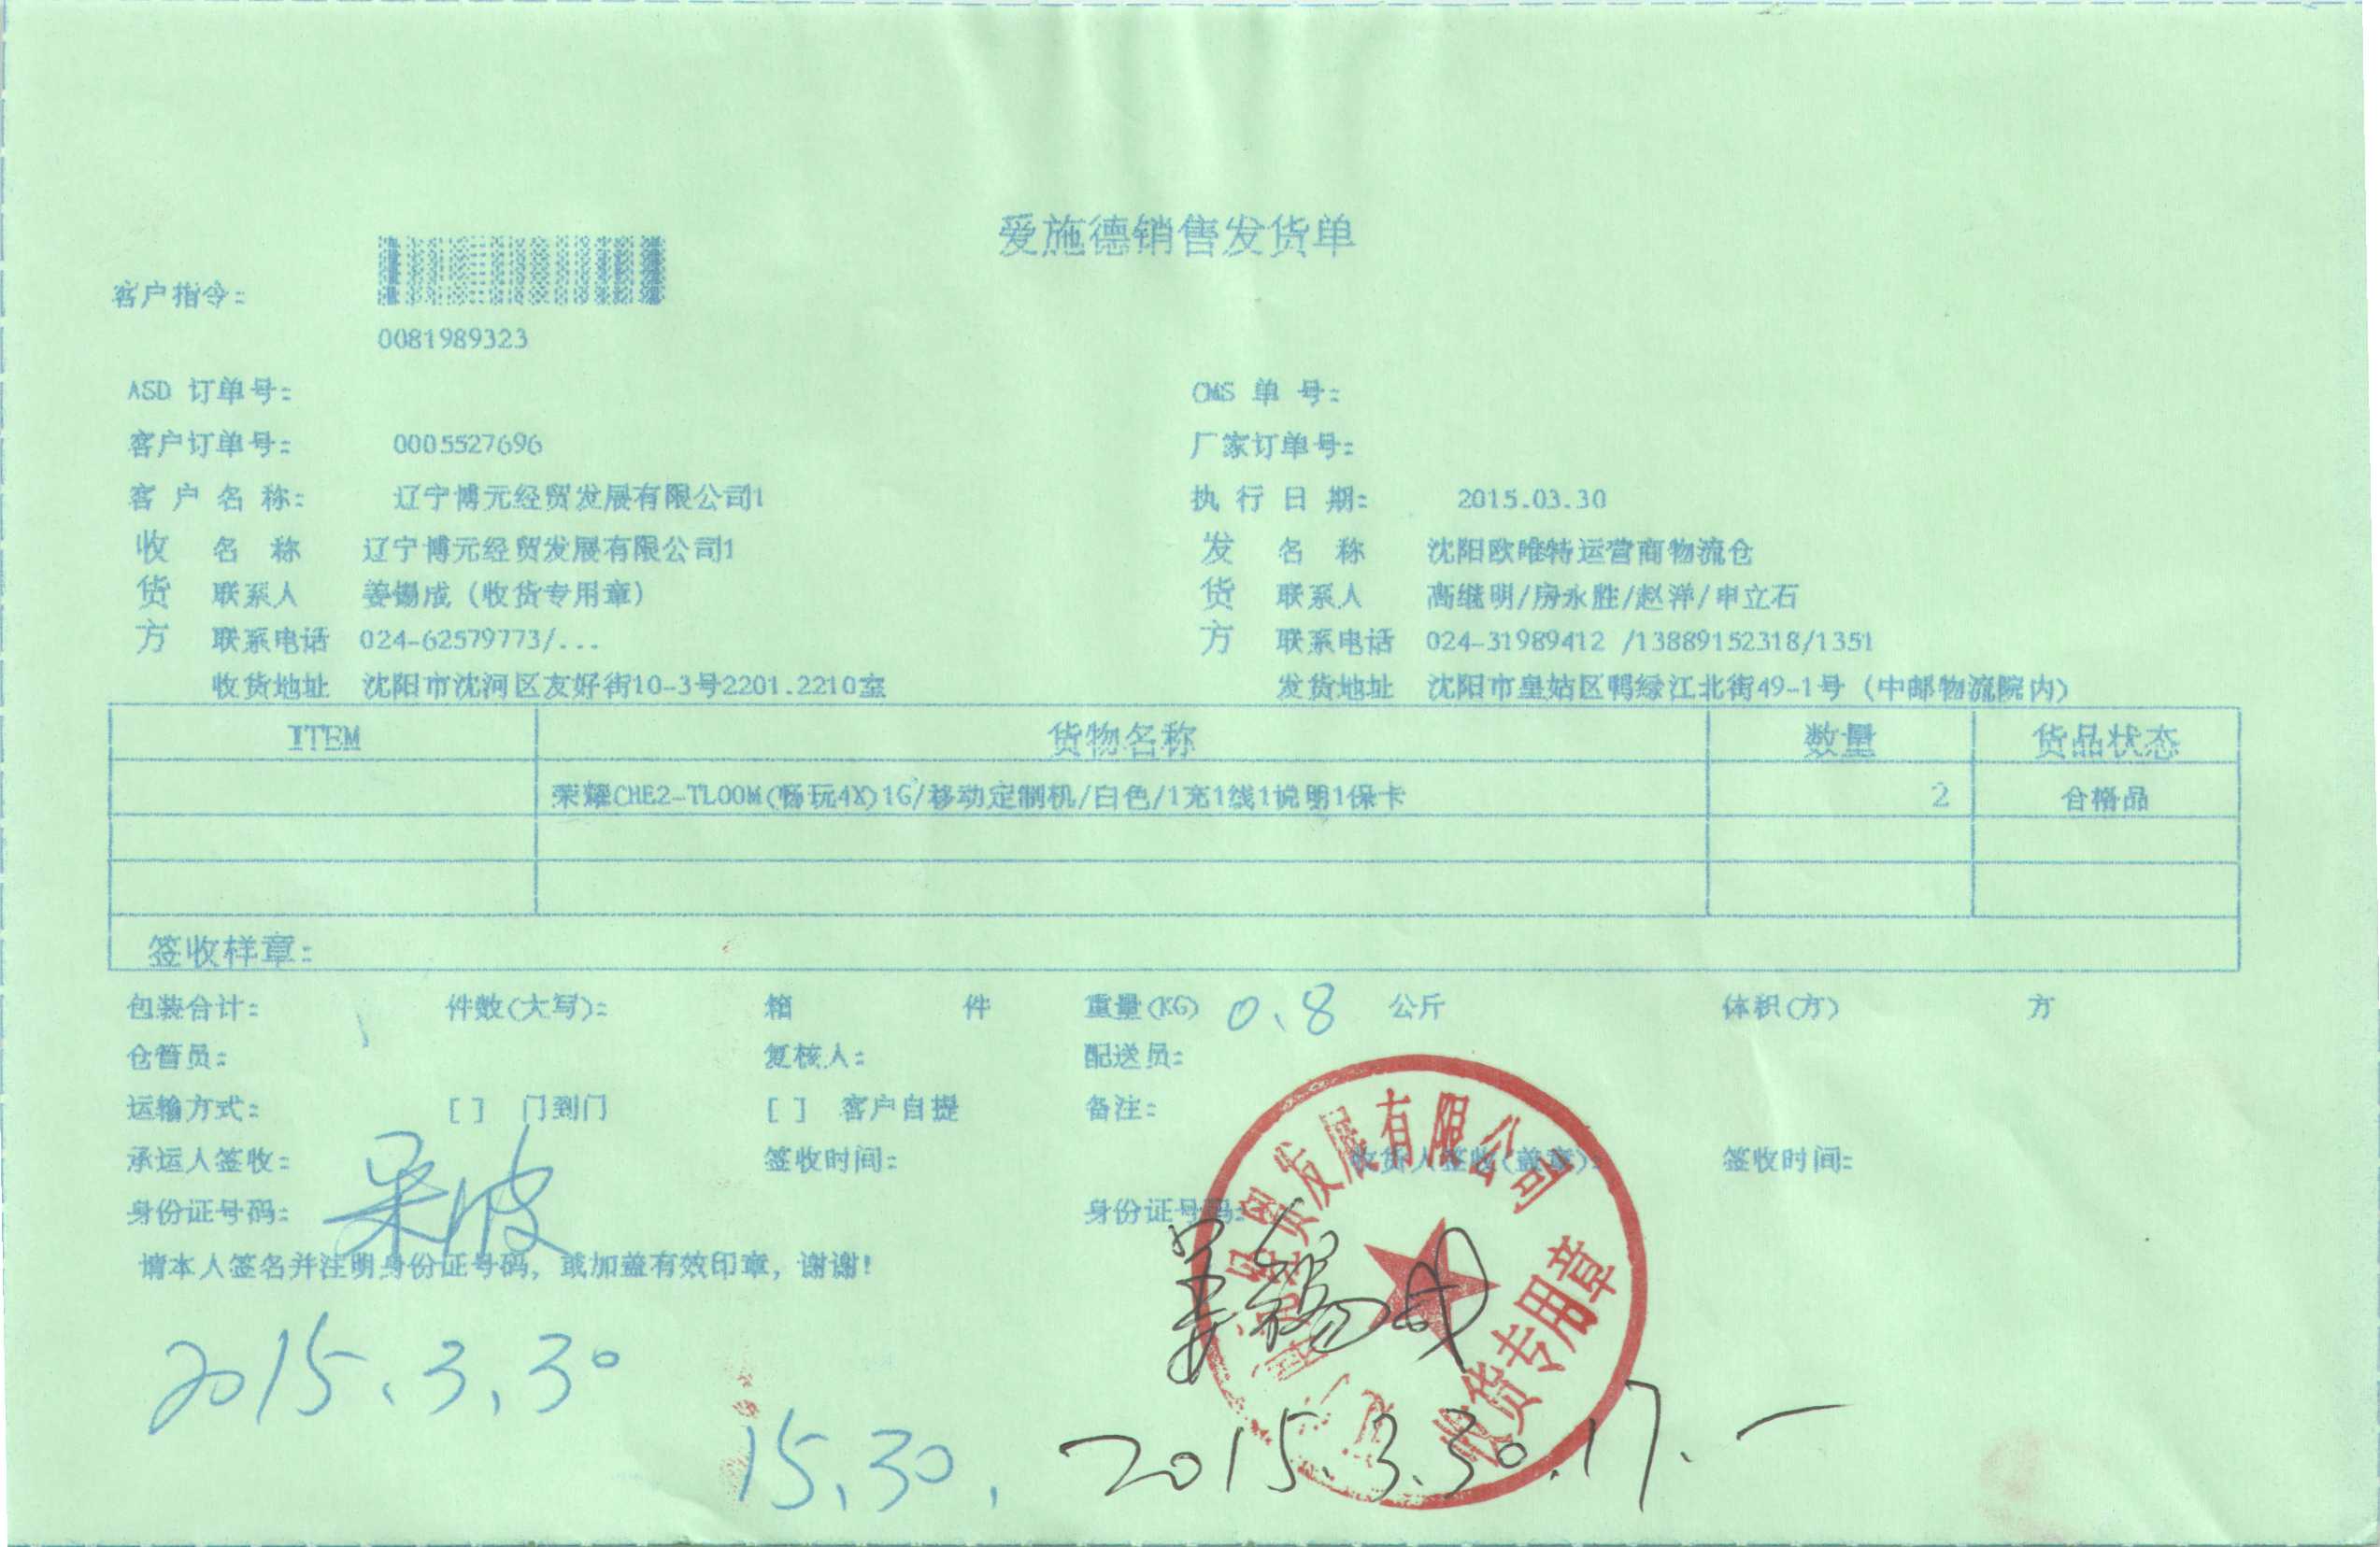 爱施德销售发货单
客户指令:
0081989323
ASD 订单号: CMS 单 号:
客户订单号: 0005527696 厂家订单号:
客 户 名 称: 辽宁博元经贸发展有限公司1 执 行 日 期: 2015.03.30
收 名 称 辽宁博元经贸发展有限公司1 发 名 称 沈阳欧唯特运营商物流仓
货 联系人 姜锡成 (收货专用章) 货 联系人 高继明/房永胜/赵洋/申立石
方 联系电话 024-62579773/... 方 联系电话 024-31989412 /13889152318/1351
收货地址 沈阳市沈河区友好街10-3号2201.2210室 发货地址 沈阳市皇姑区鸭绿江北街49-1号 (中邮物流院内)
ITEM 货物名称 数量 货品状态
荣耀CHE2-TL00M(畅玩4X)1G/移动定制机/白色/1充1线1说明1保卡 2 合格品
签收样章:
包装合计: 1 件数(大写): 箱 件 重量(KG) 0.8 公斤 体积(方) 方
仓管员: 复核人: 配送员:
运输方式: [ ] 门到门 [ ] 客户自提 备注:
承运人签收: 签收时间: 收货人签收(盖章): 签收时间:
身份证号码: 身份证号码:
请本人签名并注明身份证号码, 或加盖有效印章, 谢谢!
经贸发展有限公司
收货专用章
姜锡成
2015.3.30
15.30. 2015.3.30.17.-